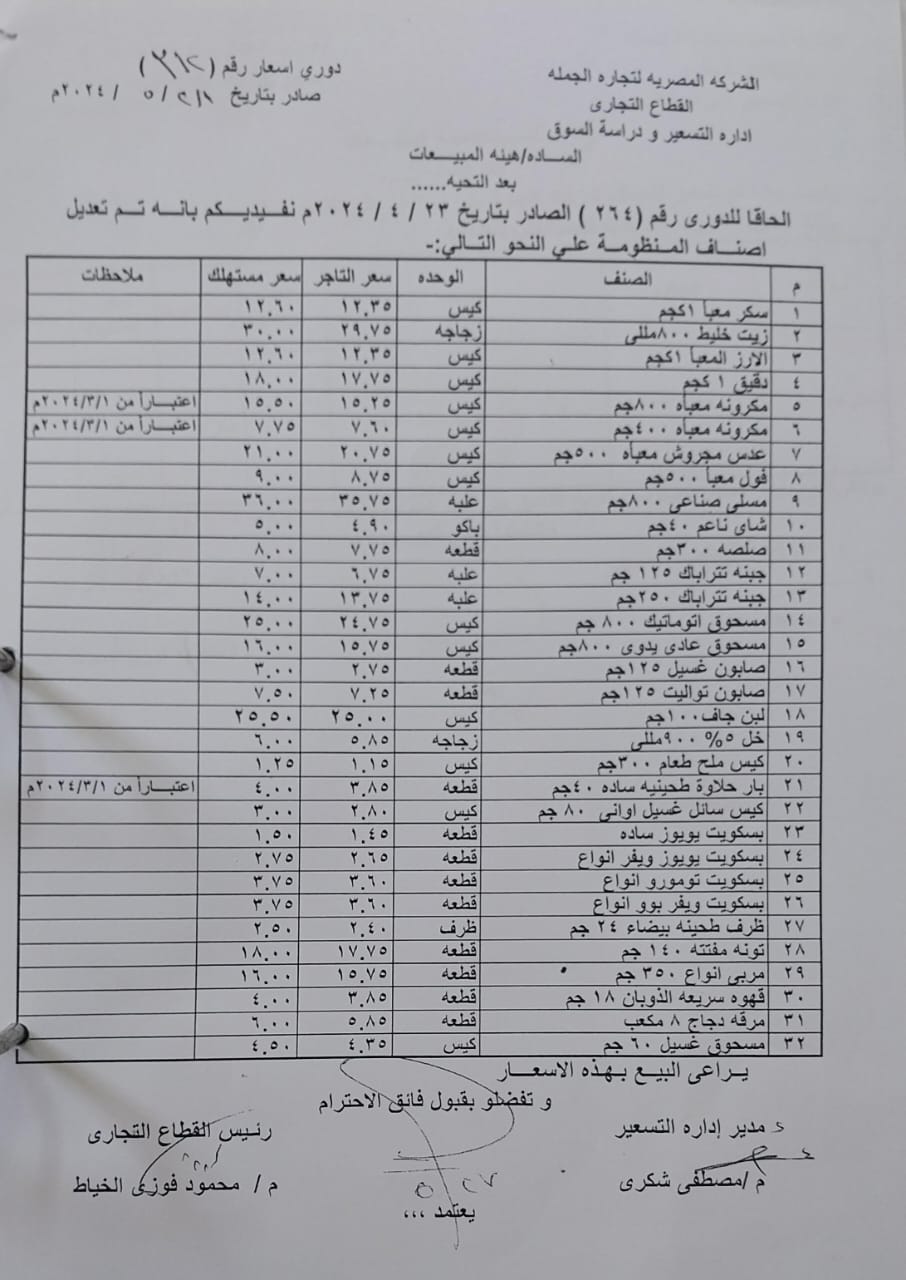 الشركه المصريه لتجاره الجمله
القطاع التجارى
اداره التسعير و دراسة السوق
دوري اسعار رقم (٣١٢)
صادر بتاريخ ٢٨ / ٥ / ٢٠٢٤م
الساده/هيئه المبيعات
بعد التحيه......
الحاقا للدورى رقم (٢٦٤) الصادر بتاريخ ٢٣ / ٤ / ٢٠٢٤م نفيديكم بانه تم تعديل
اصناف المنظومة علي النحو التالي:-
م الصنف الوحده سعر التاجر سعر مستهلك ملاحظات
١ سكر معبأ ١كجم كيس ١٢.٣٥ ١٢.٦٠
٢ زيت خليط ٨٠٠مللى زجاجه ٢٩.٧٥ ٣٠.٠٠
٣ الارز المعبأ ١كجم كيس ١٢.٣٥ ١٢.٦٠
٤ دقيق ١ كجم كيس ١٧.٧٥ ١٨.٠٠
٥ مكرونه معباه ٨٠٠جم كيس ١٥.٢٥ ١٥.٥٠ اعتباراً من ٢٠٢٤/٣/١م
٦ مكرونه معباه ٤٠٠جم كيس ٧.٦٠ ٧.٧٥ اعتباراً من ٢٠٢٤/٣/١م
٧ عدس مجروش معباه ٥٠٠جم كيس ٢٠.٧٥ ٢١.٠٠
٨ فول معبأ ٥٠٠جم كيس ٨.٧٥ ٩.٠٠
٩ مسلى صناعى ٨٠٠جم علبه ٣٥.٧٥ ٣٦.٠٠
١٠ شاى ناعم ٤٠جم باكو ٤.٩٠ ٥.٠٠
١١ صلصه ٣٠٠جم قطعه ٧.٧٥ ٨.٠٠
١٢ جبنه تتراباك ١٢٥ جم علبه ٦.٧٥ ٧.٠٠
١٣ جبنه تتراباك ٢٥٠جم علبه ١٣.٧٥ ١٤.٠٠
١٤ مسحوق اتوماتيك ٨٠٠ جم كيس ٢٤.٧٥ ٢٥.٠٠
١٥ مسحوق عادى يدوى ٨٠٠جم كيس ١٥.٧٥ ١٦.٠٠
١٦ صابون غسيل ١٢٥جم قطعه ٢.٧٥ ٣.٠٠
١٧ صابون تواليت ١٢٥جم قطعه ٧.٢٥ ٧.٥٠
١٨ لبن جاف١٠٠جم كيس ٢٥.٠٠ ٢٥.٥٠
١٩ خل ٥% ٩٠٠مللى زجاجه ٥.٨٥ ٦.٠٠
٢٠ كيس ملح طعام ٣٠٠جم كيس ١.١٥ ١.٢٥
٢١ بار حلاوة طحينيه ساده ٤٠جم قطعه ٣.٨٥ ٤.٠٠ اعتباراً من ٢٠٢٤/٣/١م
٢٢ كيس سائل غسيل اوانى ٨٠ جم كيس ٢.٨٠ ٣.٠٠
٢٣ بسكويت يويوز ساده قطعه ١.٤٥ ١.٥٠
٢٤ بسكويت يويوز ويفر انواع قطعه ٢.٦٥ ٢.٧٥
٢٥ بسكويت تومورو انواع قطعه ٣.٦٠ ٣.٧٥
٢٦ بسكويت ويفر بوو انواع قطعه ٣.٦٠ ٣.٧٥
٢٧ ظرف طحينه بيضاء ٢٤ جم ظرف ٢.٤٠ ٢.٥٠
٢٨ تونه مفتته ١٤٠ جم قطعه ١٧.٧٥ ١٨.٠٠
٢٩ مربى انواع ٣٥٠ جم قطعه ١٥.٧٥ ١٦.٠٠
٣٠ قهوه سريعه الذوبان ١٨ جم قطعه ٣.٨٥ ٤.٠٠
٣١ مرقه دجاج ٨ مكعب قطعه ٥.٨٥ ٦.٠٠
٣٢ مسحوق غسيل ٦٠ جم كيس ٤.٣٥ ٤.٥٠
يراعى البيع بهذه الاسعار
و تفضلو بقبول فائق الاحترام
مدير إداره التسعير
رئيس القطاع التجارى
م /مصطفى شكرى
٢٧ ٥
م / محمود فوزى الخياط
يعتمد ,,,